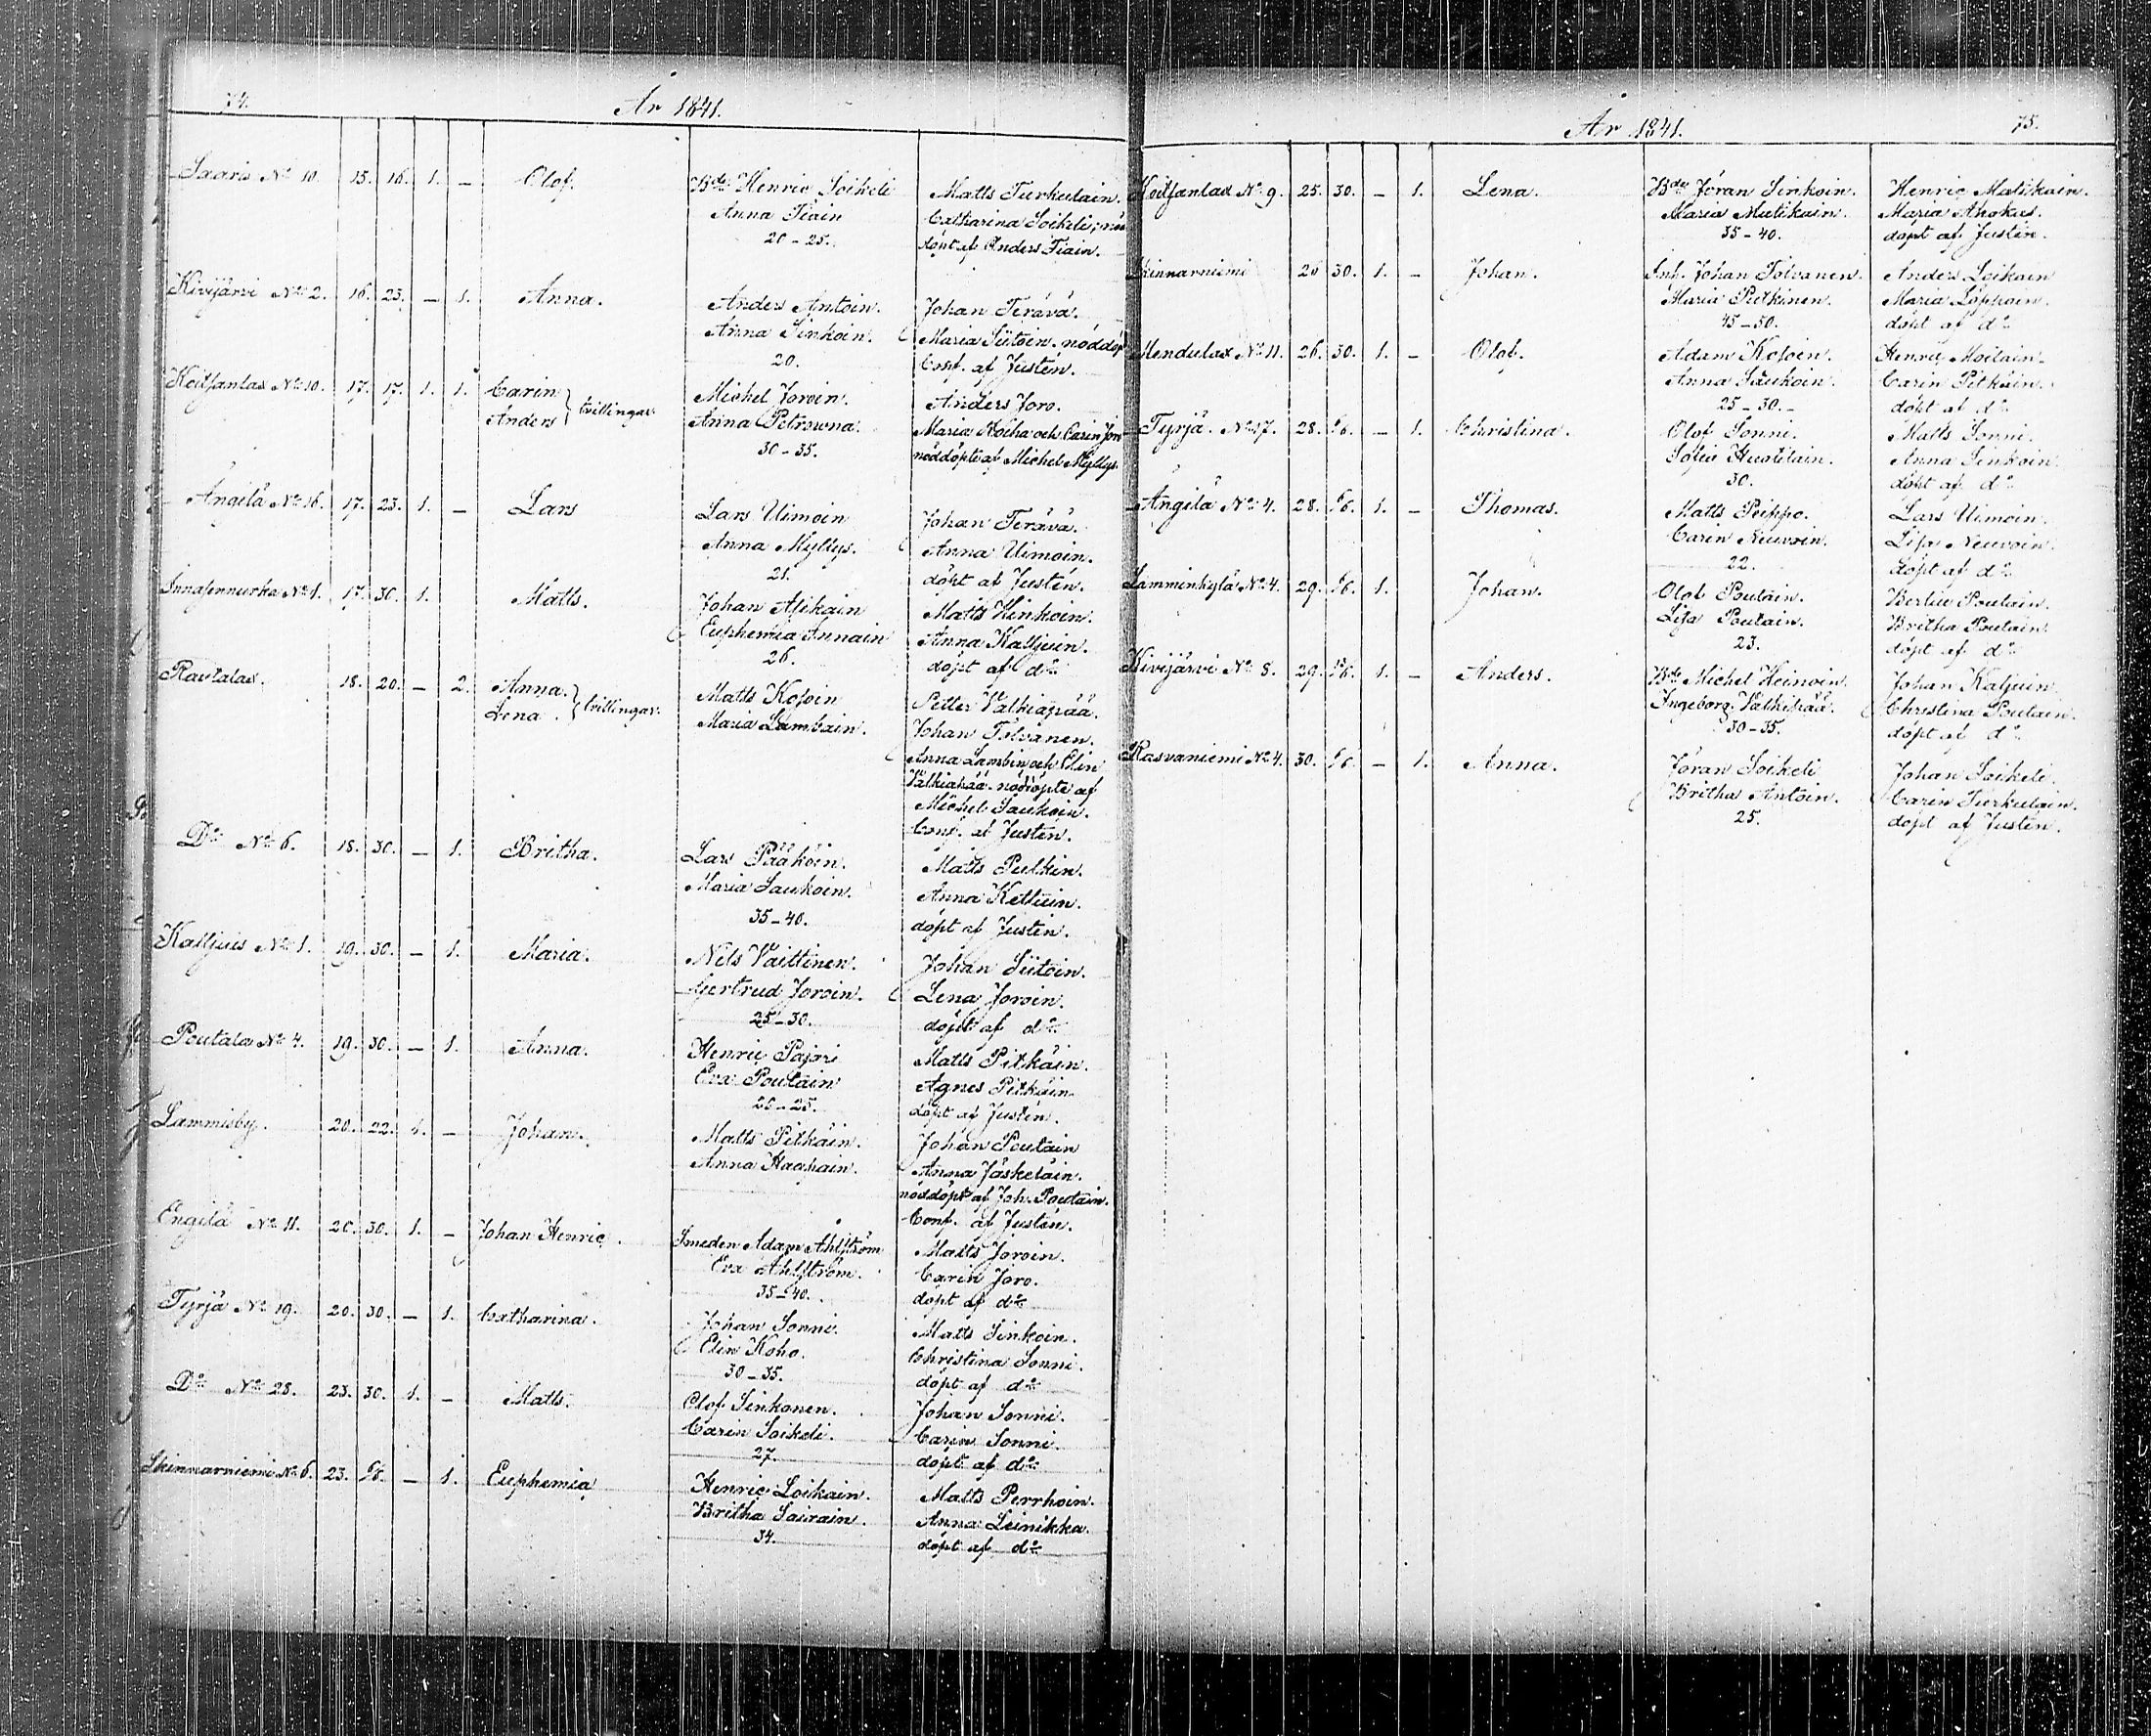 74.
År 1841.
Saaris No 10. 15. 16. 1. – Olof. Bde Henric Soikeli Matts Turkulain.
Anna Tiain Catharina Soikeli,
20 – 25. döpt af Anders Tiain.
Kivijärvi No 2. 16. 23. – 1. Anna. Anders Antoin. Johan Terävä.
Anna Sinkoin. Maria Siitoin. nöddöpt
20. Conf. af Justén.
Koitsanlax No 10. 17. 17. 1. 1. Carin Michel Joroin. Anders Joro.
Anders } tvillingar Anna Petrowna. Maria Kocha och Carin Joro
30 – 35. nöddöpte af Michel Myllys.
Ängilä No 16. 17. 23. 1. – Lars Lars Uimoin Johan Terävä.
Anna Myllys. Anna Uimoin.
21. döpt af Justén.
No 1. 17. 30. 1. Matts. Johan Asikain Matts Hinkoin.
Euphemia Innain Anna Kalliuin.
26. döpt af do
Rautalax. 18. 20. – 2. Anna. Matts Kosoin Petter Valkiapää.
Lena. } tvillingar. Maria Lambain. Johan Tolvanen.
Anna Lambin och Elin
Valkiapää. nöddöpte af
Michel Saukoin.
Conf. af Justén.
Do No 6. 18. 30. – 1. Britha. Lars Pääköin. Matts Pulkin.
Maria Saukoin. Anna Kettuin.
35 – 40. döpt af Justén.
Kalljuis No 1. 19. 30. – 1. Maria. Nils Vaittinen. Johan Siitoin.
Gertrud Joroin. Lena Joroin.
25 – 30. döpt af do
Poutala No 4. 19. 30. – 1. Anna. Henric Pajari Matts Pitkäin.
Eva Poutain Agnes Pitkäin
20 – 25. döpt af Justén.
Lammisby. 20. 22. 1. – Johan. Matts Pitkäin. Johan Poutain
Anna Haahain. Anna Jäskeläin.
nöddöpt af Joh. Poutain.
Conf. af Justén.
Engilä No 11. 20. 30. 1. – Johan Henric. Smeden Adam Ahlström Matts Joroin.
Eva Ahlström. Carin Joro.
35 – 40. döpt af do
Tyrjä No 19. 20. 30. – 1. Catharina. Johan Sonni. Matts Sinkoin.
Elin Koho. Christina Sonni.
30 – 35. döpt af do
Do No 28. 23. 30. 1. – Matts. Olof Sinkonen. Johan Sonni.
Carin Soikeli. Carin Sonni.
27. döpt af do
Skinnarniemi No 6. 23. – 1. Euphemia Henric Loikain. Matts Perrhoin.
Britha Sairain. Anna Leinikka.
34. döpt af do
År 1841.
75.
Koitsanlax No 9. 25. 30. – 1. Lena. Bde Jöran Sinkoin. Henric Matikain.
Maria Matikain. Maria Anokas.
35 – 40. döpt af Justén.
Skinnarniemi 26 30. 1. – Johan. Inh. Johan Tolvanen. Anders Loikain
Maria Pitkinen. Maria Loppoin.
45 – 50. döpt af do
Mendulax No 11. 26. 30. 1. – Olof. Adam Kosoin. Henric Moilain.
Anna Saukoin. Carin Pitkäin.
25 – 30. döpt af do
Tyrjä. No 17. 28. – 1. Christina. Olof Sonni. Matts Sonni.
Sofia Huatilain. Anna Sinkoin.
30. döpt af do
Ängilä No 4. 28. 1. – Thomas. Matts Peippo. Lars Uimoin.
Carin Neuvoin. Lisa Neuvoin.
22. döpt af do
Lamminkylä No 4. 29. 1. Johan. Olof Poutain. Bertil Poutain.
Lisa Poutain. Britha Poutain.
23. döpt af do
Kivijärvi No 8. 29. 1. – Anders. Bde Michel Heinoin. Johan Kaljuin.
Ingeborg Valkipää. Christina Poutain.
30 – 35. döpt af do
Rasvaniemi No 4. 30. – 1. Anna. Jöran Soikeli Johan Soikeli.
Britha Antoin. Carin Turkulain.
25. döpt af Justén.